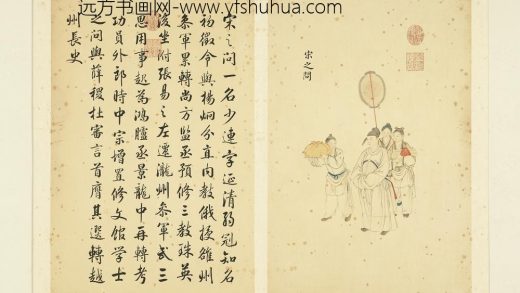 远方书画网：www.yfshuhua.com
宋之问一名少連字延清弱冠知名
初徵令與楊炯分直内教俄授雒州
参軍累轉尚方監丞預修三教珠英
後坐附張易之左遷瀧州参軍武三
思用事起為鴻臚丞景龍中再轉考
功員外郎時中宗增置修文館學士
之問與薛稷杜審言首膺其選轉越
州長史
宋之問